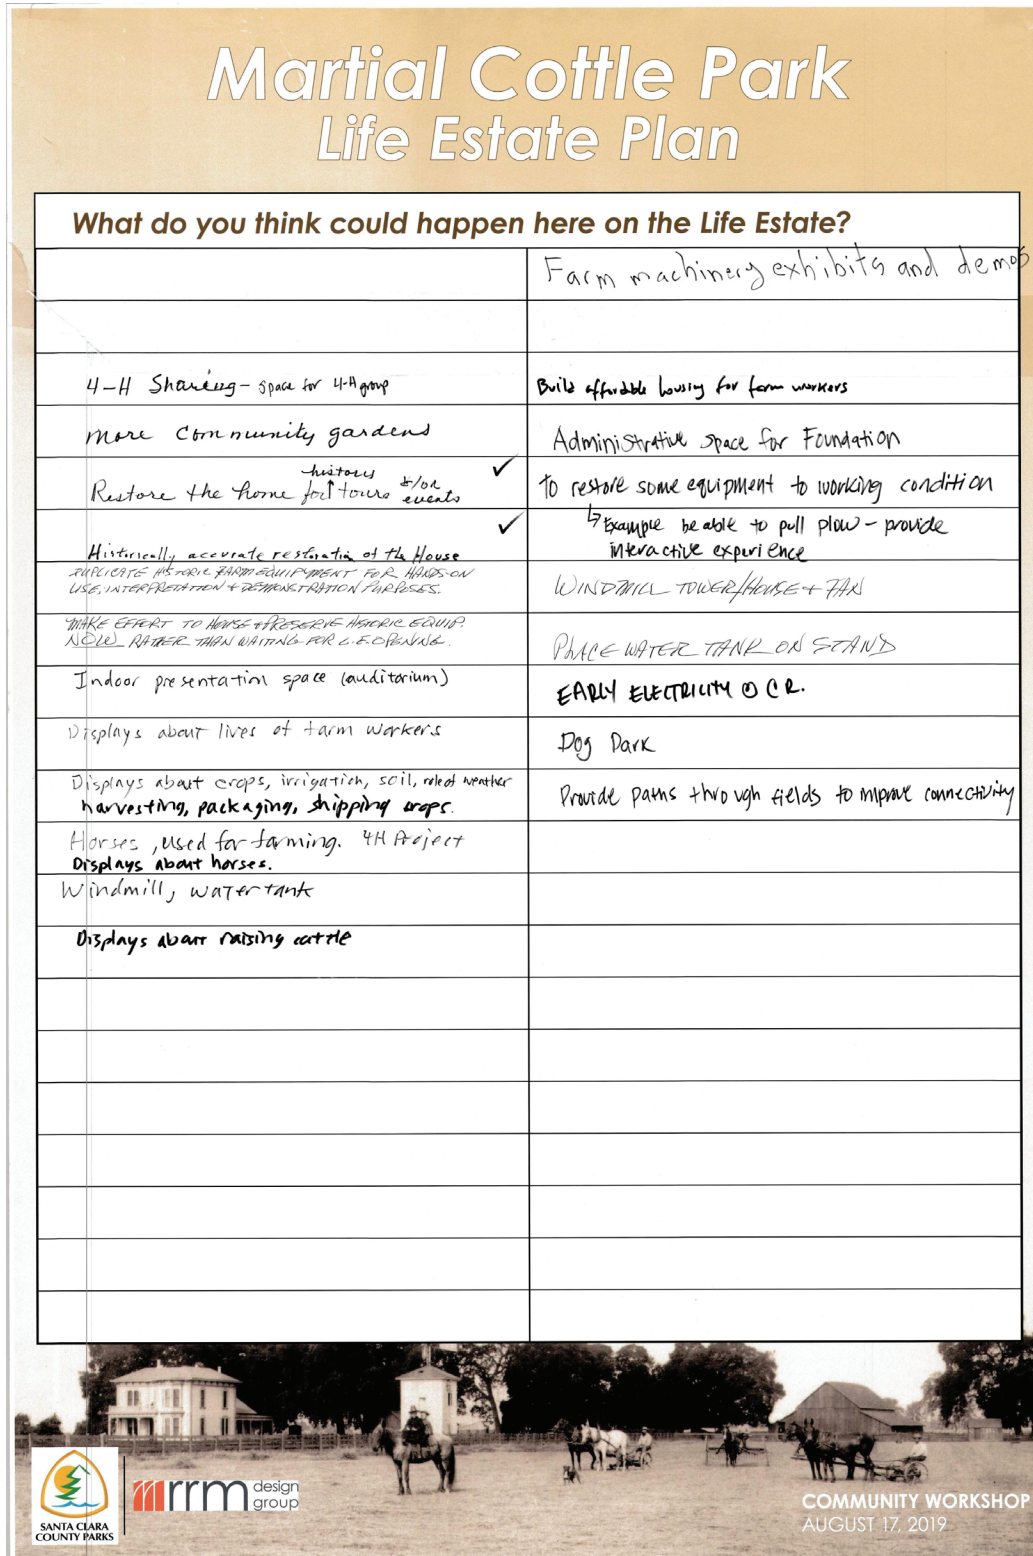 Martial Cottle Park
Life Estate Plan
What do you think could happen here on the Life Estate?
4-H Sharing - space for 4-H group
More Community gardens
Restore the home for history tours &/or events ✓
Historically accurate restoration of the House ✓
DUPLICATE HISTORIC FARM EQUIPMENT FOR HANDS-ON
USE, INTERPRETATION + DEMONSTRATION PURPOSES.
MAKE EFFORT TO HOUSE + PRESERVE HISTORIC EQUIP.
NOW RATHER THAN WAITING FOR L.E. OPENING.
Indoor presentation space (auditorium)
Displays about lives of farm workers
Displays about crops, irrigation, soil, role of weather
harvesting, packaging, shipping crops.
Horses, used for farming. 4H Project
Displays about horses.
Windmill, water tank
Displays about raising cattle
Farm machinery exhibits and demos
Build affordable housing for farm workers
Administrative space for Foundation
to restore some equipment to working condition
↳ Example be able to pull plow - provide
interactive experience
WINDMILL TOWER/HOUSE + FAN
PLACE WATER TANK ON STAND
EARLY ELECTRICITY @ C R.
Dog Park
Provide paths through fields to improve connectivity
SANTA CLARA
COUNTY PARKS
rrm design
group
COMMUNITY WORKSHOP
AUGUST 17, 2019